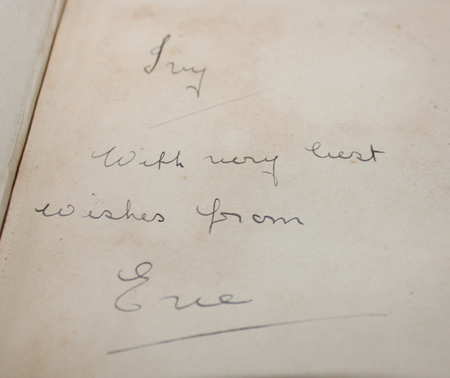 Ivy
With very best
wishes from
Eve